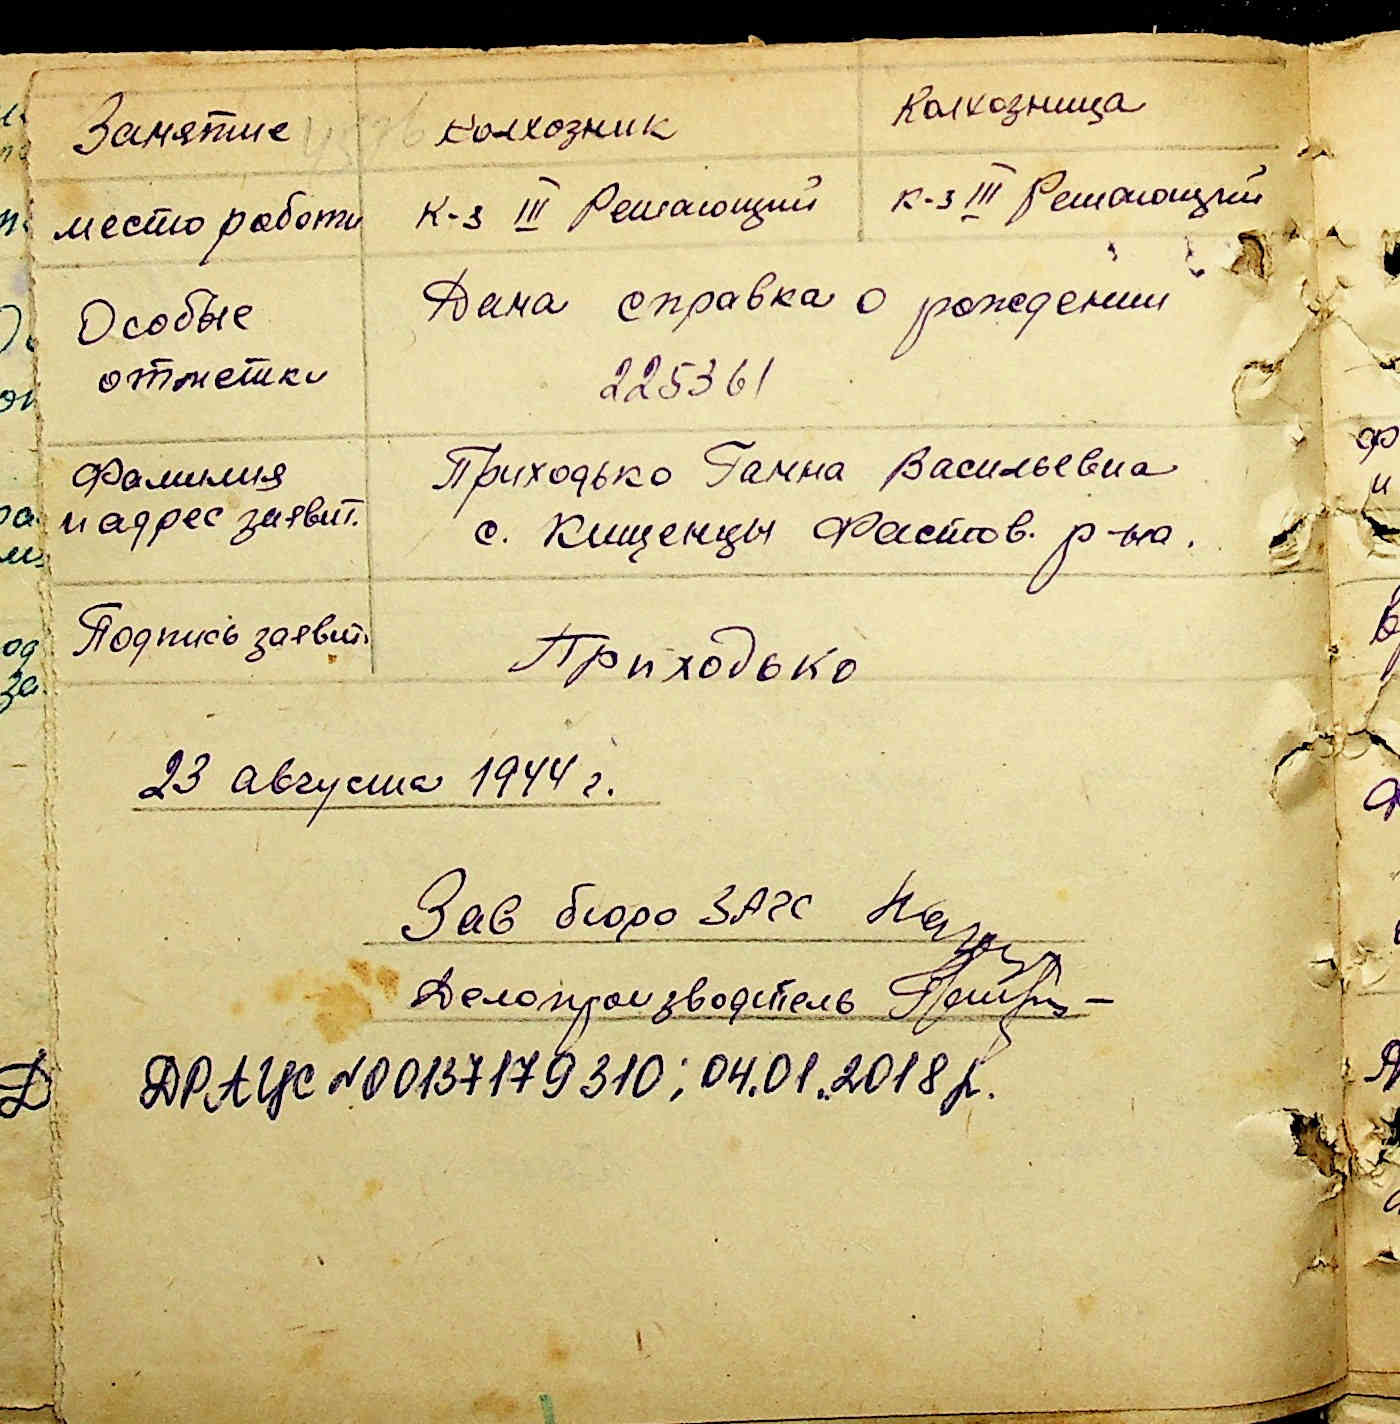 Занятие колхозник Колхозница
место работы к-з III Решающий к-з III Решающий
Особые Дана справка о рождении
отметки 225361
Фамилия Приходько Ганна Васильевна
и адрес заявит. с. Кищенцы Фастов. р-на.
Подпись заявит. Приходько
23 августа 1944 г.
Зав бюро ЗАГС
Делопроизводитель
ДРАЦС №00137179310; 04.01.2018 р.